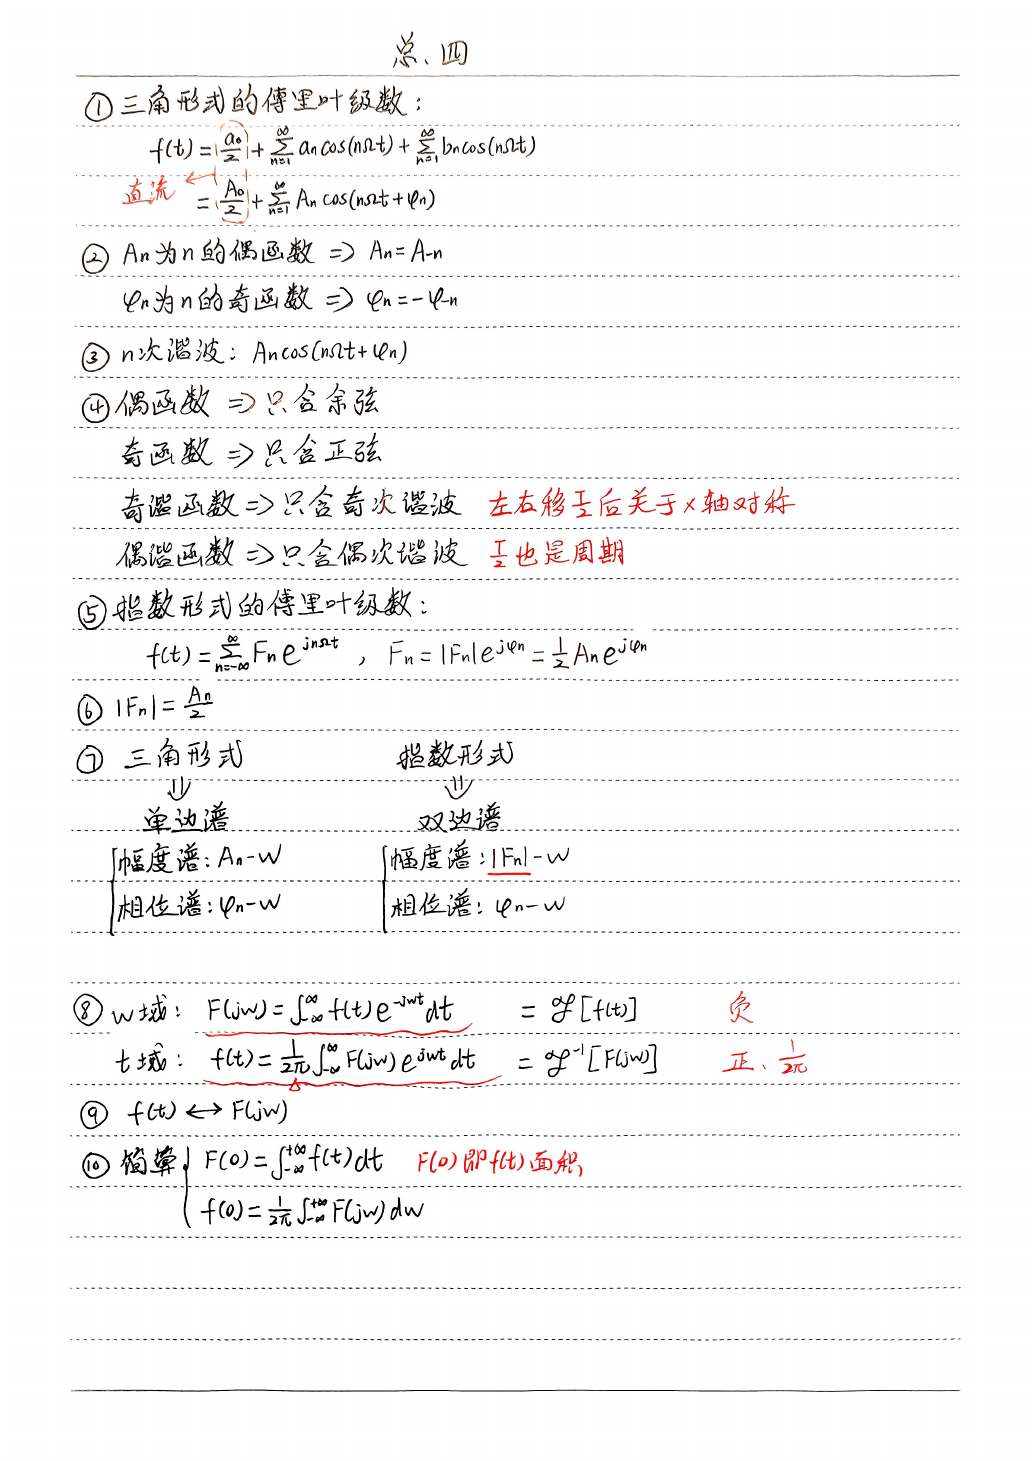 总、四
① 三角形式的傅里叶级数：
f(t) = a₀/2 + ∑_{n=1}^{∞} aₙcos(nΩt) + ∑_{n=1}^{∞} bₙcos(nΩt)
直流 = A₀/2 + ∑_{n=1}^{∞} Aₙcos(nΩt+φₙ)
② Aₙ为n的偶函数 => Aₙ=A₋ₙ
φₙ为n的奇函数 => φₙ=-φ₋ₙ
③ n次谐波：Aₙcos(nΩt+φₙ)
④ 偶函数 => 只含余弦
奇函数 => 只含正弦
奇谐函数 => 只含奇次谐波 左右移T/2后关于x轴对称
偶谐函数 => 只含偶次谐波 T/2也是周期
⑤ 指数形式的傅里叶级数：
f(t) = ∑_{n=-∞}^{∞} Fₙe^{jnΩt}，Fₙ = |Fₙ|e^{jφₙ} = 1/2 Aₙe^{jφₙ}
⑥ |Fₙ| = Aₙ/2
⑦ 三角形式 指数形式
⇓ ⇓
单边谱 双边谱
幅度谱：Aₙ-w 幅度谱：|Fₙ|-w
相位谱：φₙ-w 相位谱：φₙ-w
⑧ w域：F(jw) = ∫_{-∞}^{∞} f(t)e^{-jwt}dt = ℱ[f(t)] 负
t域：f(t) = 1/2π ∫_{-∞}^{∞} F(jw)e^{jwt}dt = ℱ⁻¹[F(jw)] 正、1/2π
⑨ f(t) ↔ F(jw)
⑩ 简单 F(0) = ∫_{-∞}^{+∞} f(t)dt F(0)即f(t)面积
f(0) = 1/2π ∫_{-∞}^{+∞} F(jw)dw